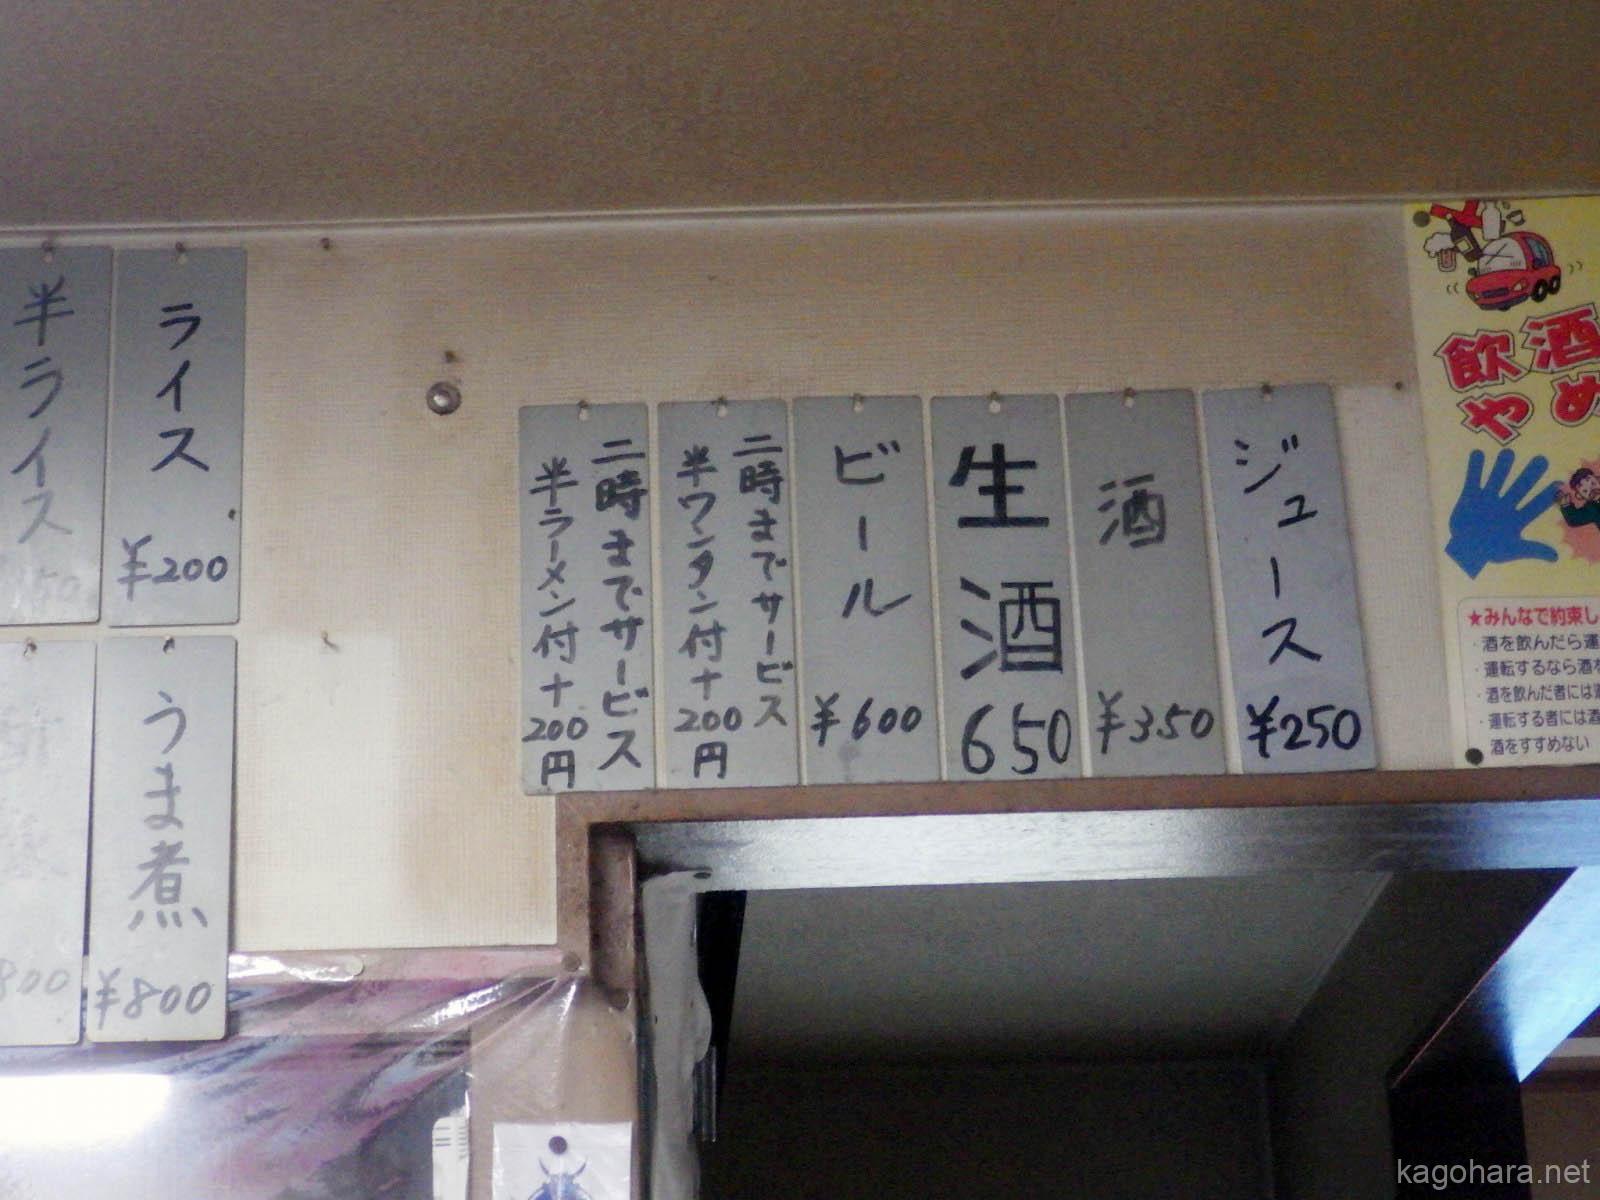 ジュース
¥250
酒
¥350
生酒
650
ビール
¥600
二時までサービス
半ワンタン付+200円
二時までサービス
半ラーメン付+200円
ライス
¥200
半ライス
50
うま煮
¥800
800
飲酒
やめ
★みんなで約束し
・酒を飲んだら運
・運転するなら酒を
・酒を飲んだ者には運
・運転する者には酒
酒をすすめない
kagohara.net